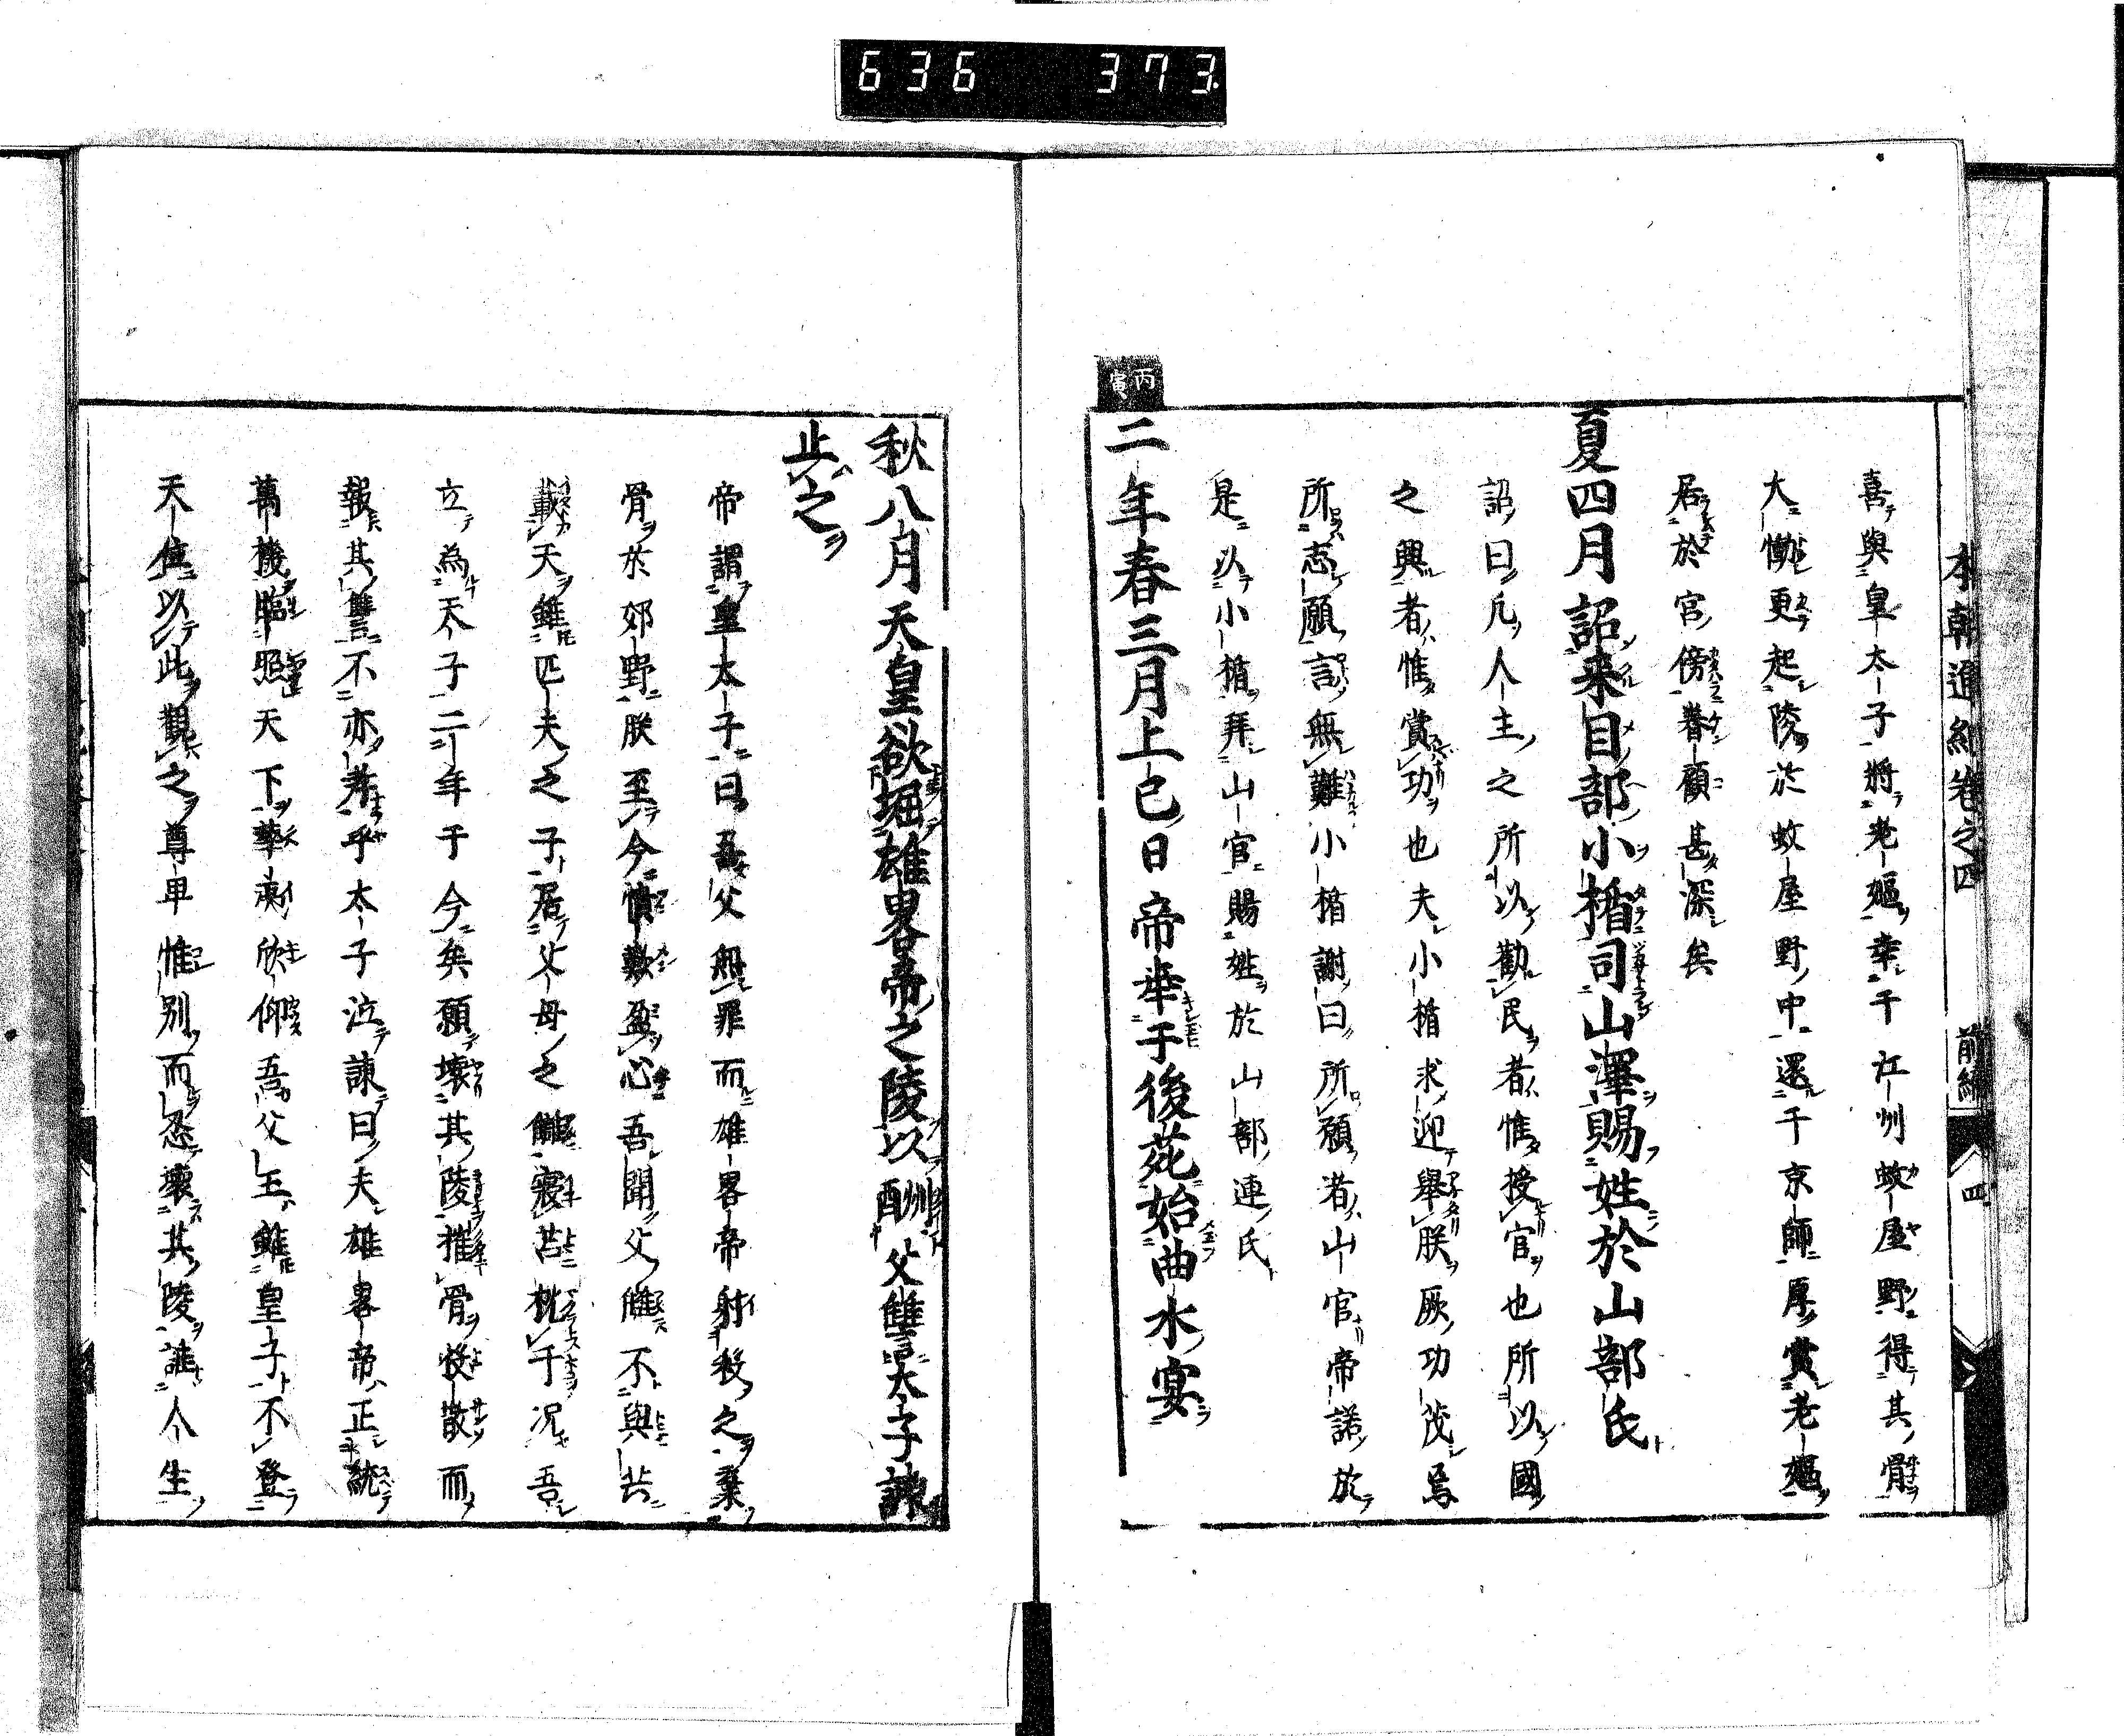 636 373
本朝通紀卷之四 前編 四
喜與皇太子將老嫗幸于江州蚊屋野得其骨
大慟更起陵於蚊屋野中還于京師厚賞老嫗
居於宮傍眷顧甚深矣
夏四月詔来目部小楯司山澤賜姓於山部氏
詔曰凡人主之所以勸民者惟授官也所以國
之興者惟賞功也夫小楯求迎舉朕厥功茂焉
所志願言無難小楯謝曰所願者山官帝諾於
是以小楯拜山官賜姓於山部連氏
丙寅
二年春三月上巳日帝幸于後苑始曲水宴
秋八月天皇欲堀雄畧帝之陵以酬父讐太子諫
止之
帝謂皇太子曰吾父無罪而雄畧帝射殺之棄
骨於郊野朕至今憤歎盈心吾聞父讎不與共
戴天雖匹夫之子居父母之讎寢苫枕干况吾
立為天子二年于今矣願壞其陵摧骨投散而
報其讐不亦孝乎太子泣諫曰夫雄畧帝正統
萬機臨照天下華夷欣仰吾父王雖皇子不登
天位以此觀之尊卑惟别而忍壞其陵誰人生